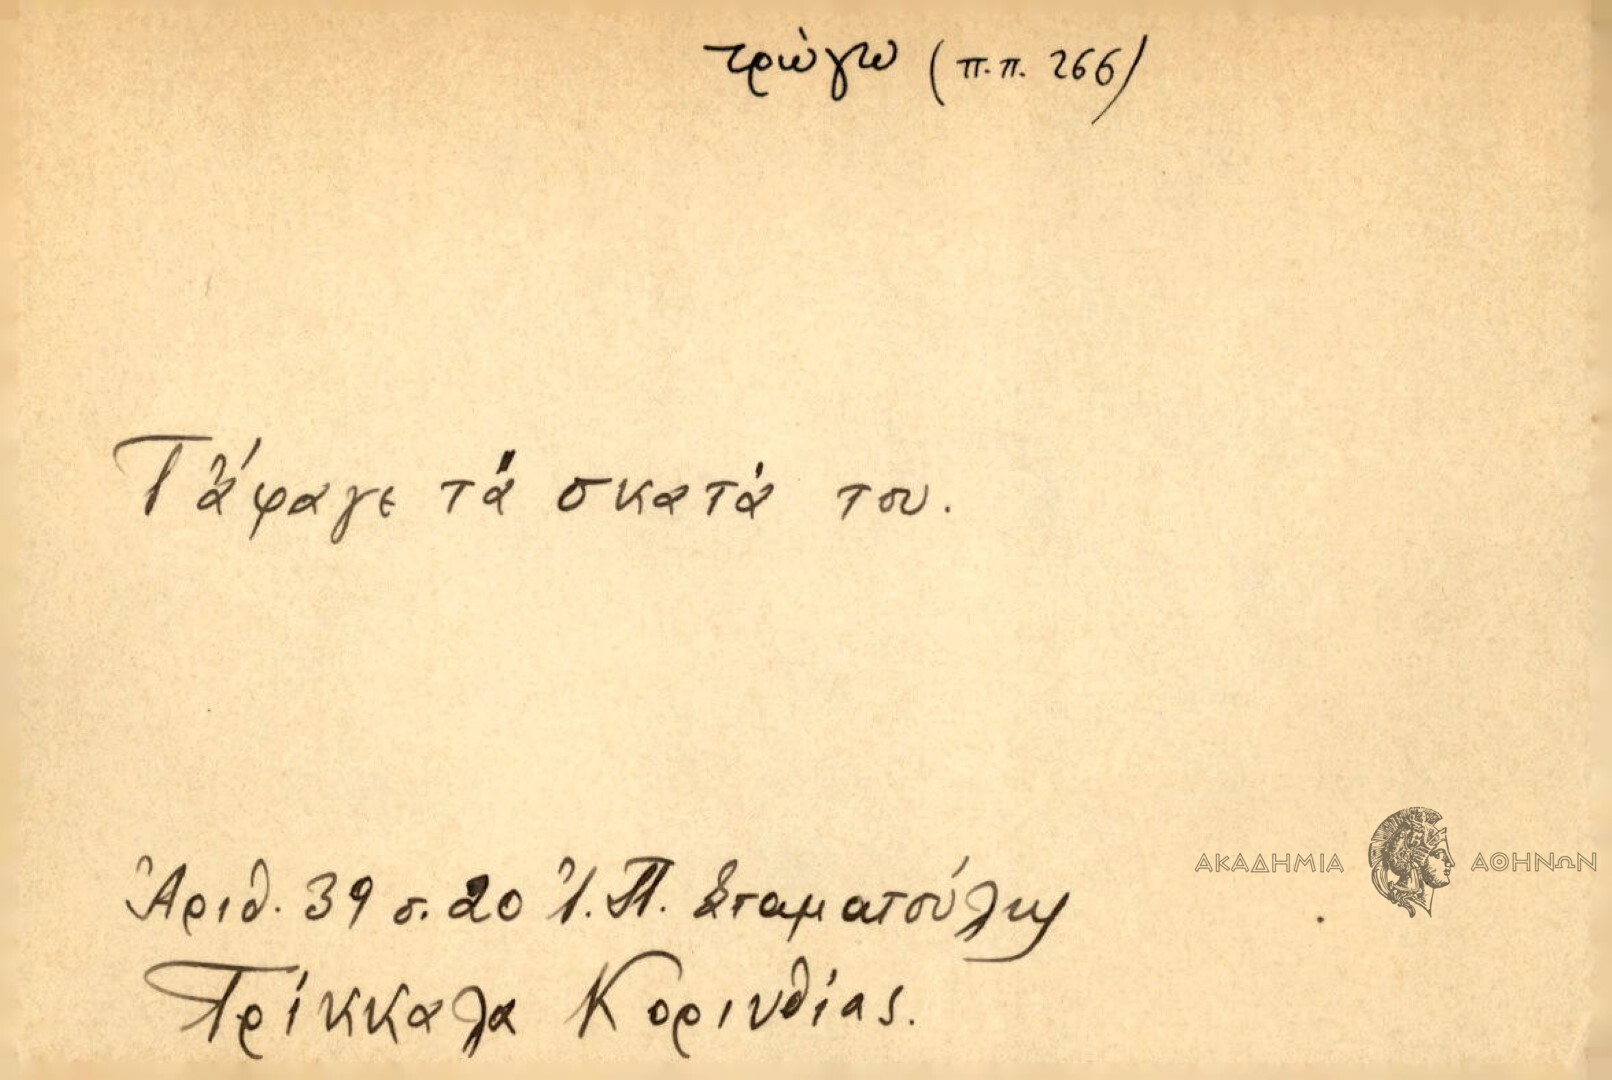 τρώγω (π.π. 266)
Τἄφαγε τὰ σκατά του.
Ἀριθ. 39 σ. 20 Ἰ. Π. Σταματούλης
Τρίκκαλα Κορινθίας.
ΑΚΑΔΗΜΙΑ ΑΘΗΝΩΝ